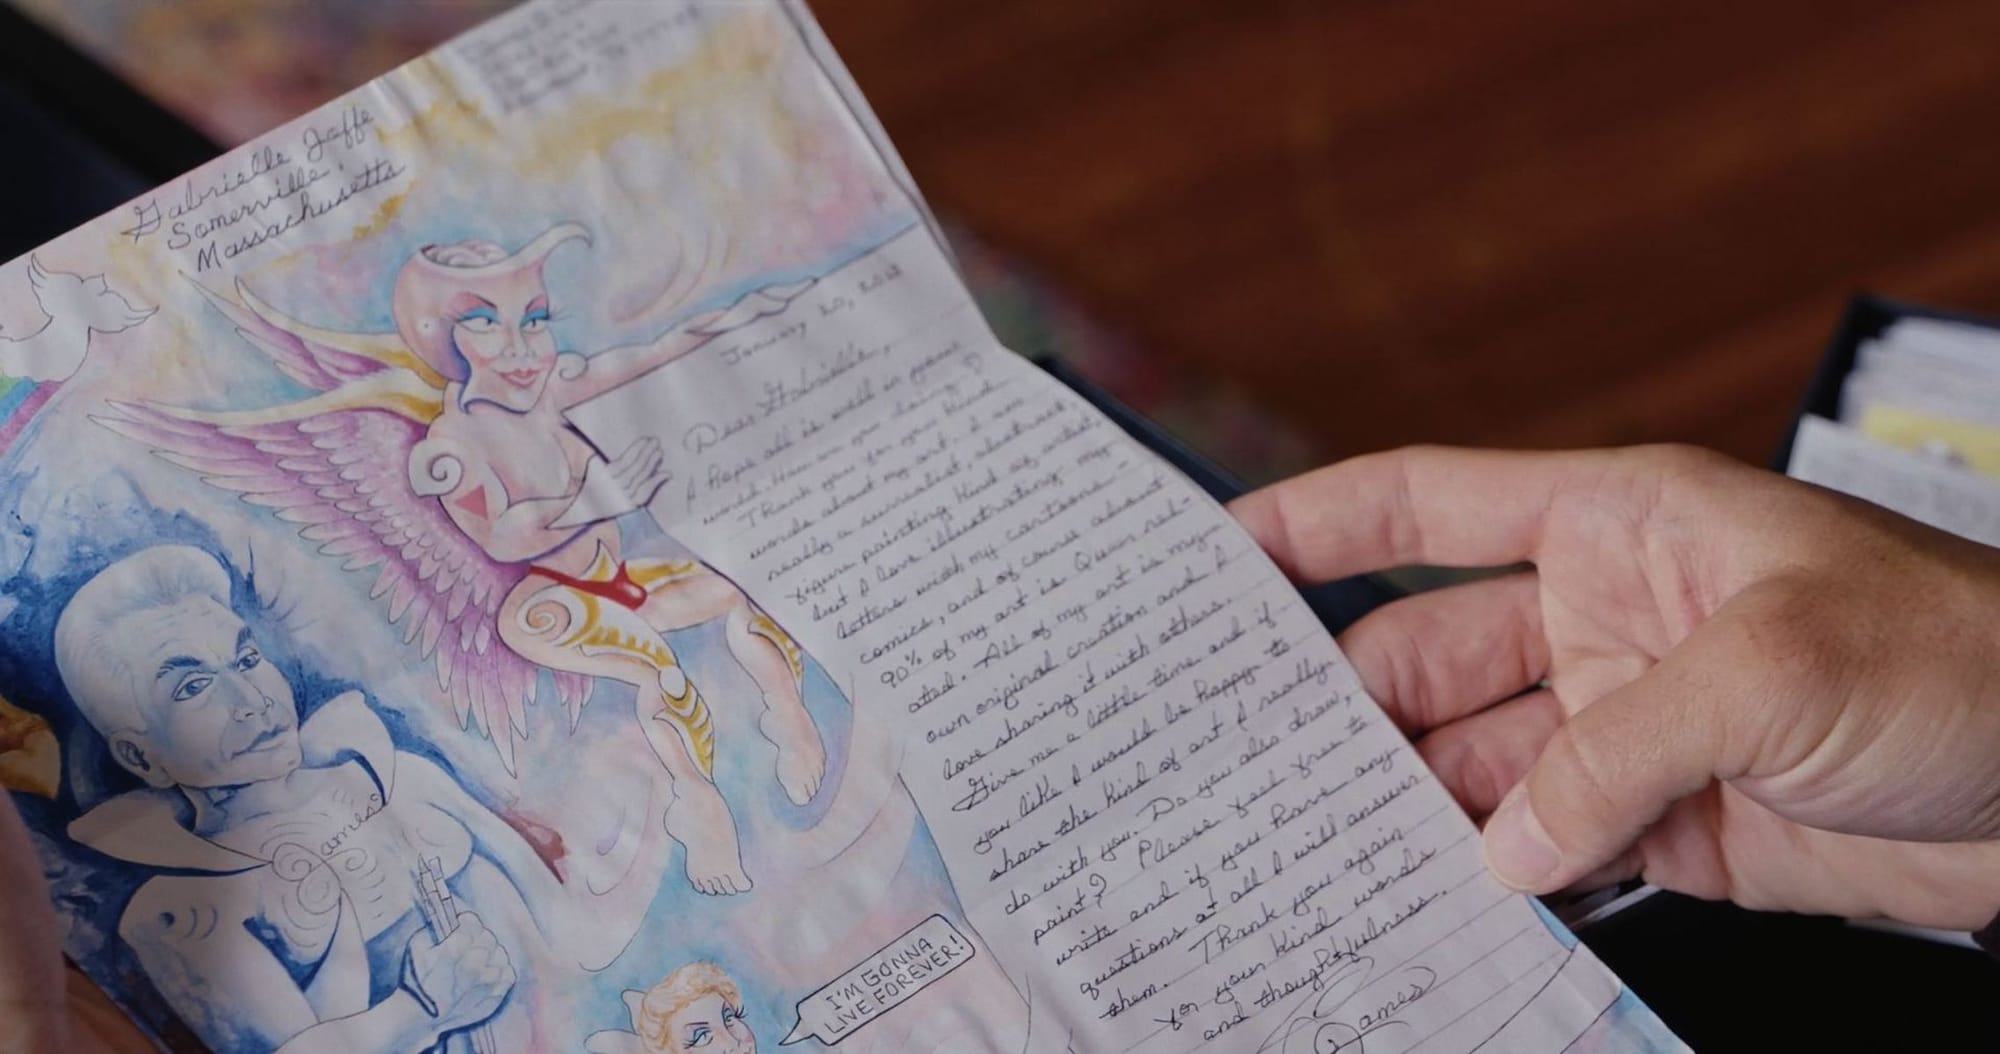 Gabrielle Jaffe
Somerville
Massachusetts
January 20,
Dear Gabrielle,
I hope all is well in your
world. How are you doing?
Thank you for your kind
words about my art. I am
really a surrealist, abstract,
figure painting kind of artist,
but I love illustrating my
letters with my cartoons -
comics, and of course about
90% of my art is Queer rel-
ated. All of my art is my
own original creation and I
love sharing it with others.
Give me a little time and if
you like I would be happy to
share the kind of art I really
do with you. Do you also draw,
paint? Please feel free to
write and if you have any
questions at all I will answer
them. Thank you again
for your kind words
and thoughtfulness.
James
James
I'M GONNA
LIVE FOREVER!